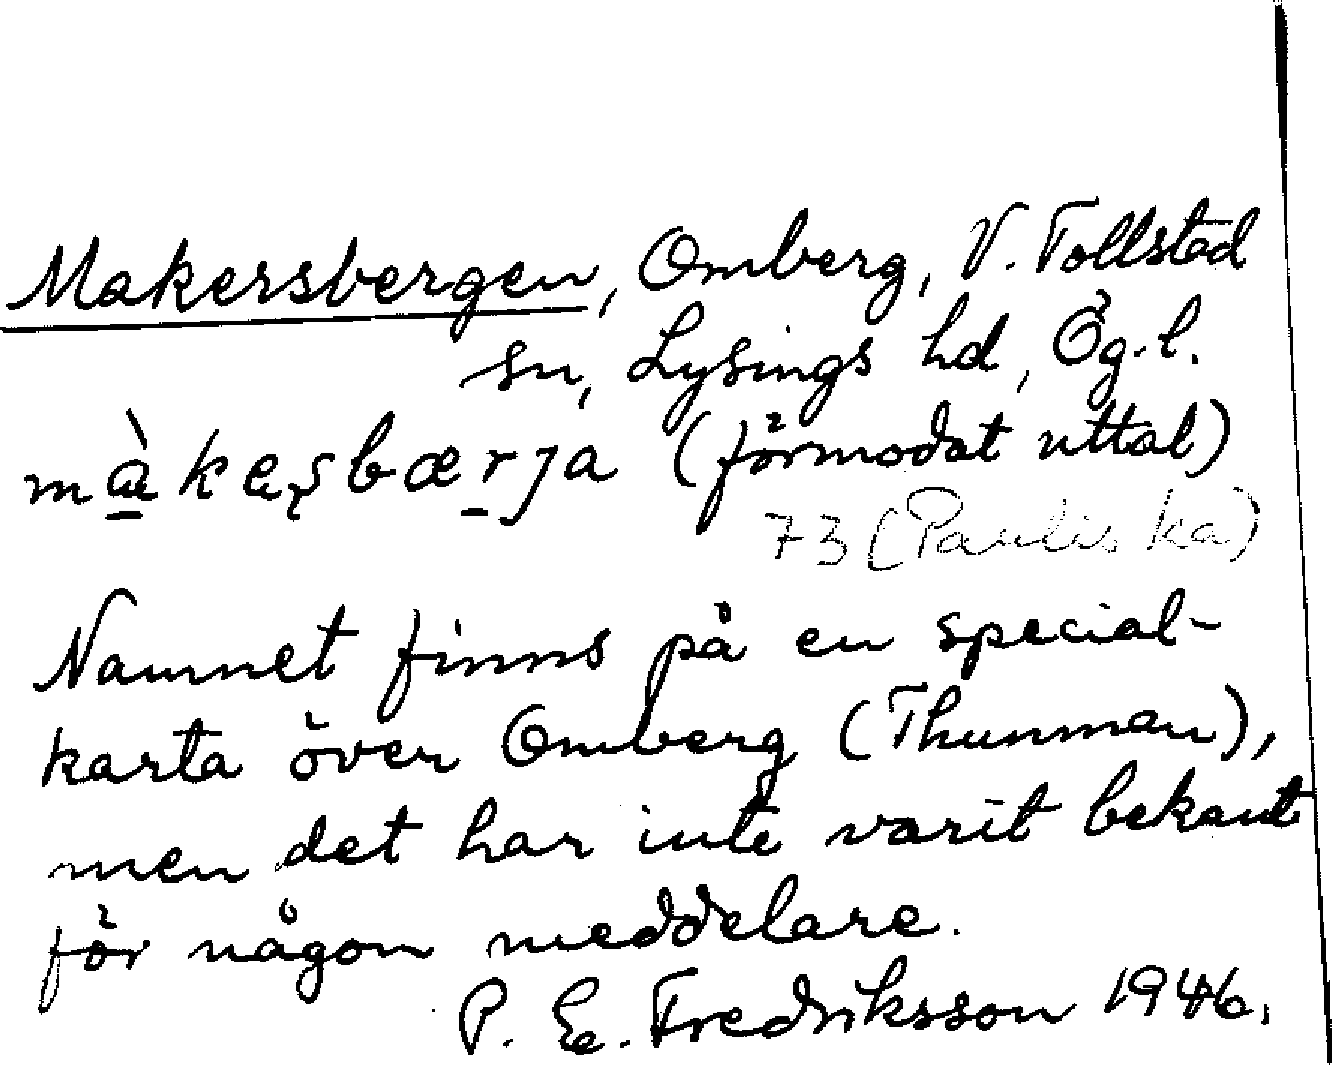 Makersbergen, Omberg, V. Tollstad
sn, Lysings hd, Ög. l.
mà̱keʂbæ̱rja (förmodat uttal)
73 (Paulis ka)
Namnet finns på en special-
karta över Omberg (Thunman),
men det har inte varit bekant
för någon meddelare.
P. E. Fredriksson 1946.